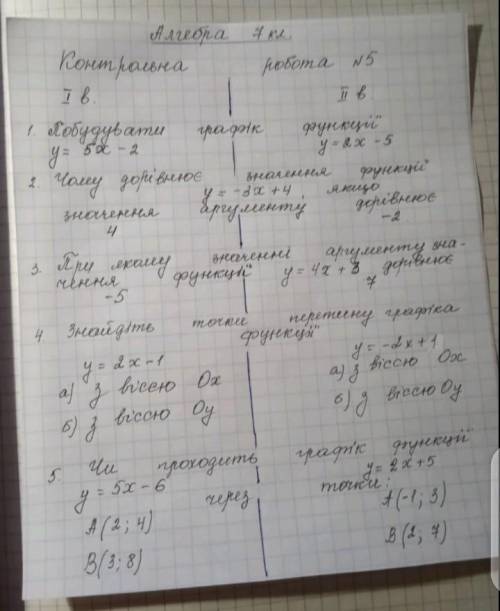 Алгебра 7 кл.
Контрольна робота №5
І в. ІІ в
1. Побудувати графік функції
y = 5x - 2 y = 2x - 5
2. Чому дорівнює значення функції
y = -3x + 4 якщо
значення аргументу дорівнює
4 -2
3. При якому значенні аргументу зна-
чення функції y = 4x + 3 дорівнює
-5 7
4 Знайдіть точки перетину графіка
функції
y = 2x - 1 y = -2x + 1
а) з віссю Ox а) з віссю Ox
б) з віссю Oy б) з віссю Oy
5. Чи проходить графік функції
y = 5x - 6 y = 2x + 5
через точки:
A(2; 4) A(-1; 3)
B(3; 8) B(2; 7)